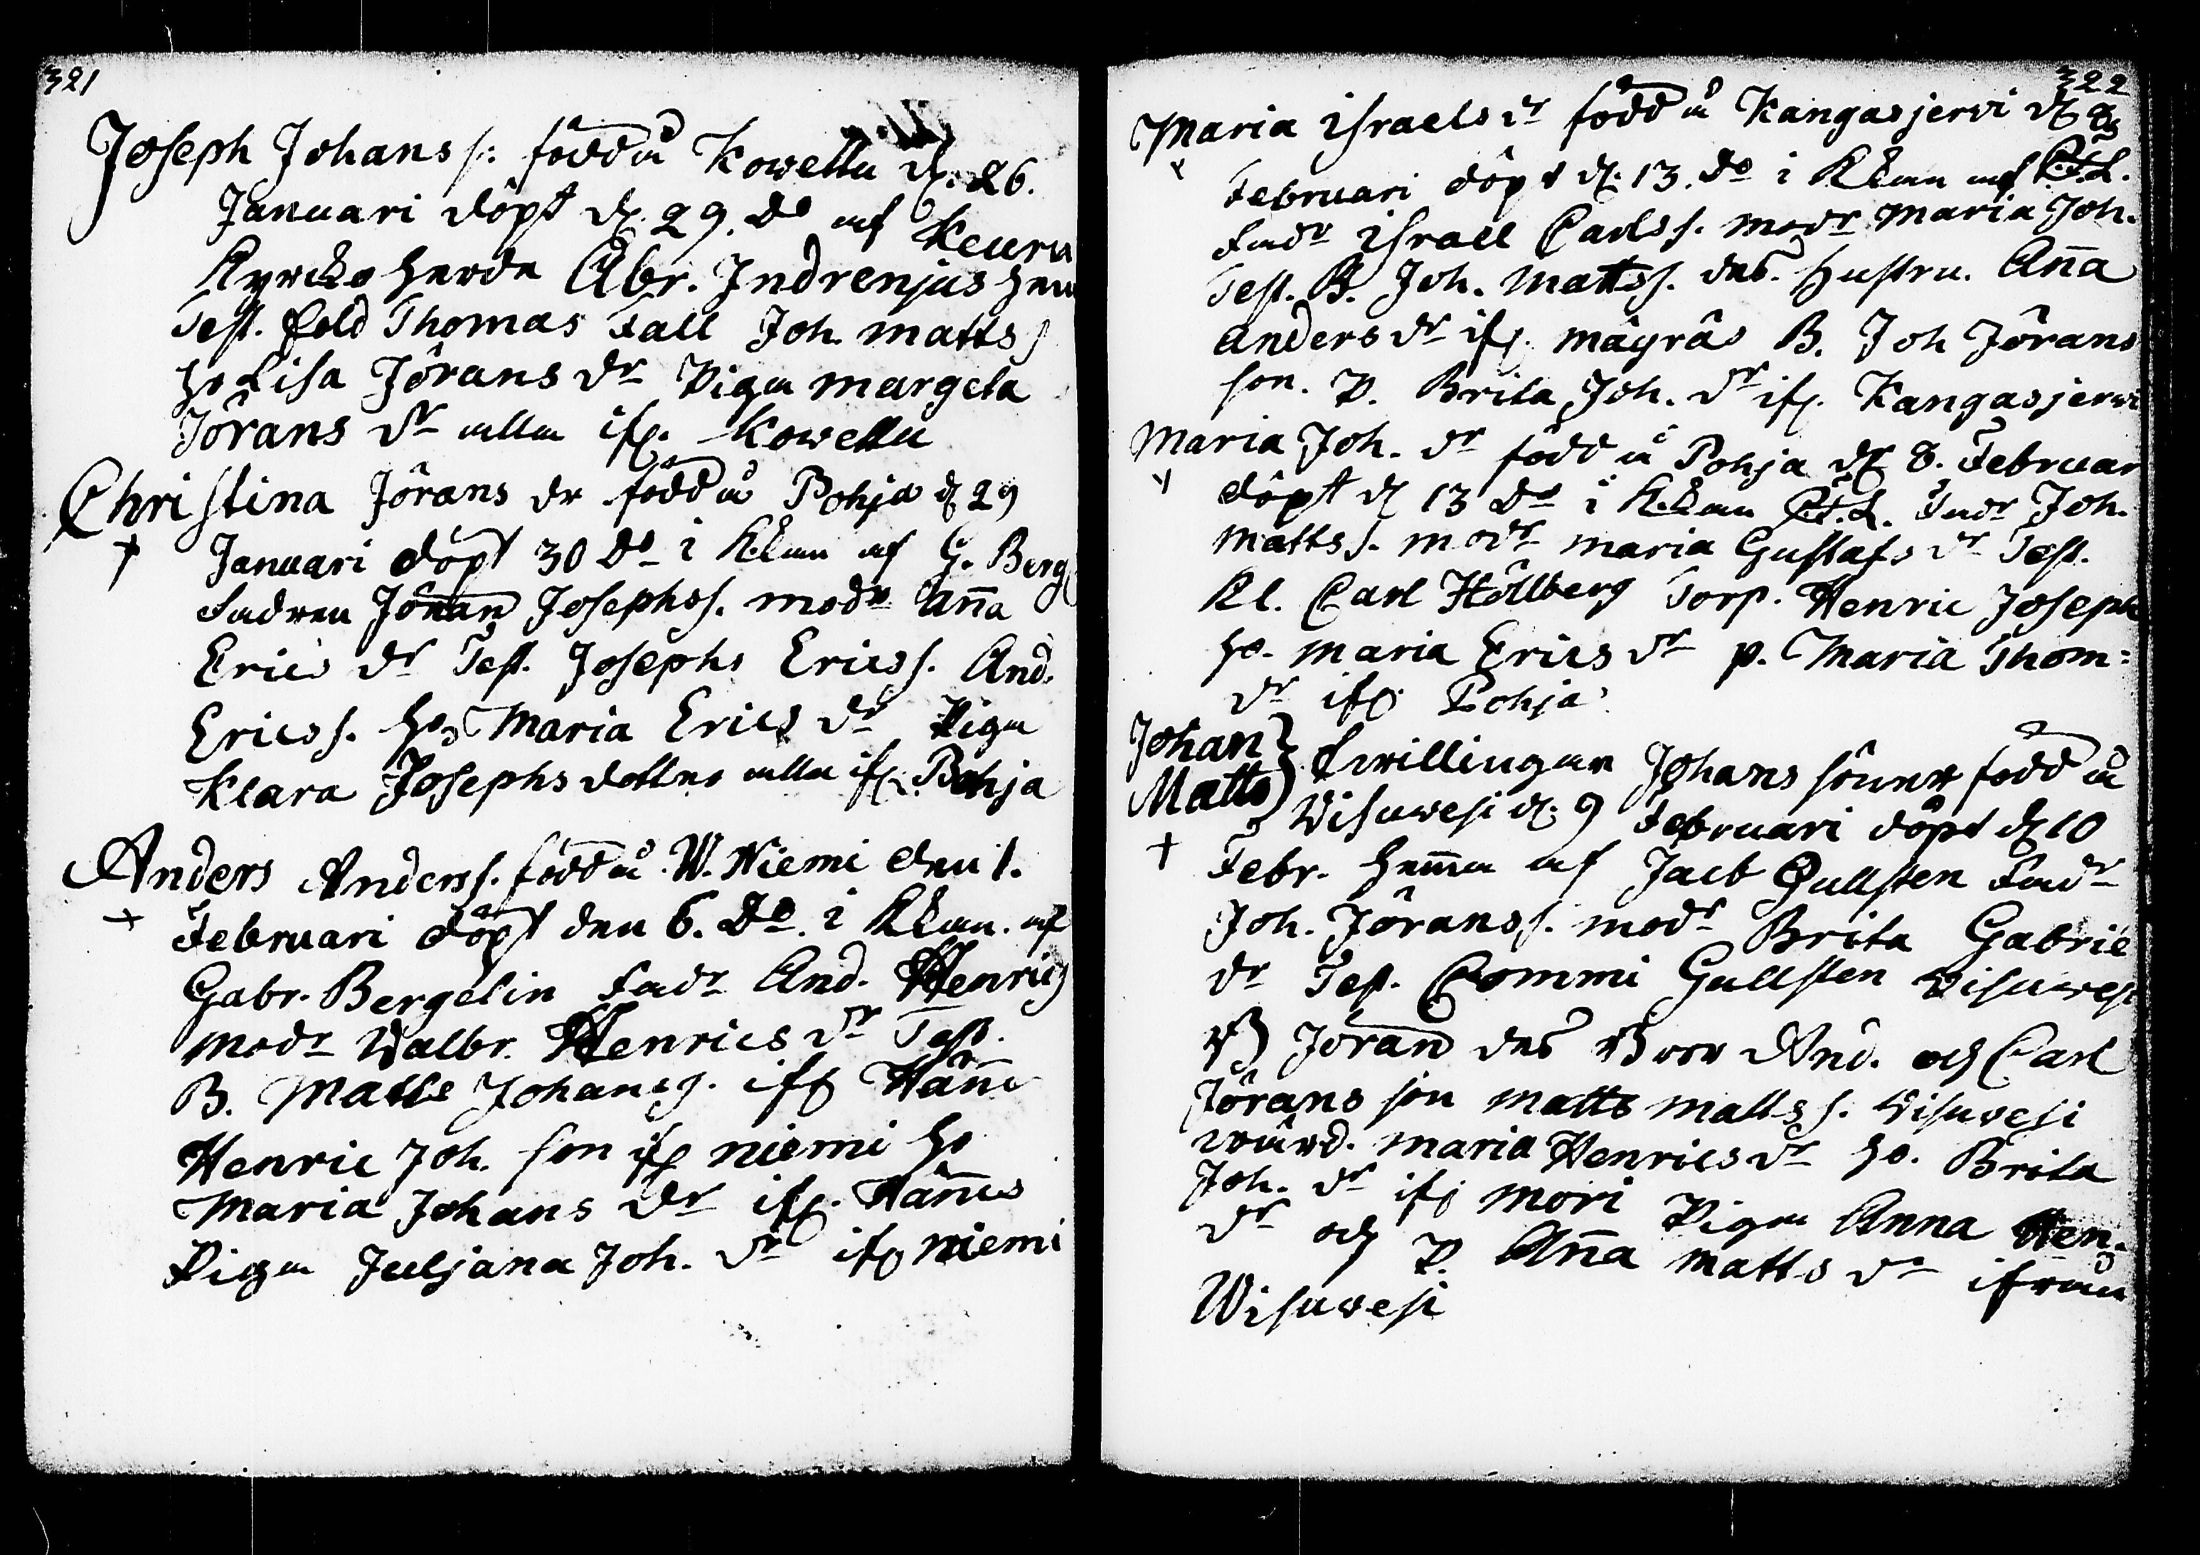 321
Joseph Johans s: född å Kowella d. 26.
Januari döpt d. 29. do af Keuru
Kyrcko herde Abr. Indrenjus hem
Test. Sold Thomas Fall Joh. matts s
ho Lisa Jörans dr Piga margeta
Jörans dr alla ifr. Kowella
Christina Jörans dr född å Pohja d 29
Januari döpt 30 do i K. kan af G. Berg
Fadren Jöran Josephs s. modr Ana
Erics dr Test. Josephs Erics s. And.
Erics s. ho Maria Erics dr Piga
Klara Josephs dotter alla ifr. Pohja
Anders Anders s. född å W. Niemi den 1.
Februari döpt den 6. do. i K kan. af
Gabr. Bergelin Fadr And. Henrics
modr Walbr. Henrics dr Test.
B. Matts Johans s. ifr
Henric Joh. son ifr niemi ho
Maria Johans dr ifr.
Piga Juljana Joh. dr ifr niemi
322
Maria israels dr född å Kangasjerwi d 8
Februari döpt d. 13. do i K kan af C.t. L.
Fadr israel Carls s. modr Maria Joh.
Test. B. Joh. Matts s. des hustru. Ana
Anders dr ifr. mägräs B. Joh Jörans
son. P. Brita Joh. dr ifr. Kangasjerwi
Maria Joh. dr född å Pohja d 8. Februar
döpt d 13 do i K. kan C.t. L. Fadr Joh.
Matts s. modr maria Gustafs dr Test.
Kl. Carl Hollberg Torp. Henric Joseph
ho. maria Erics dr p. Maria Thom:
dr ifr Pohja
Johan } Twillingar Johans söner född å
Matts } Wisuwesi d. 9 Februari döpt d 10
Febr. hema af Jacb Gullsten Fadr
Joh. Jörans s. modr Brita Gabrie
dr Test. Commi Gullsten Wisuwesi
B Jöran des Bror And. och Carl
Jörans son matts matts s. Wisuwesi
wärd. maria Henrics dr ho. Brita
Joh. dr ifr mori Piga Anna Hen.
dr och P. Ana matts dr ifrån
Wisuwesi